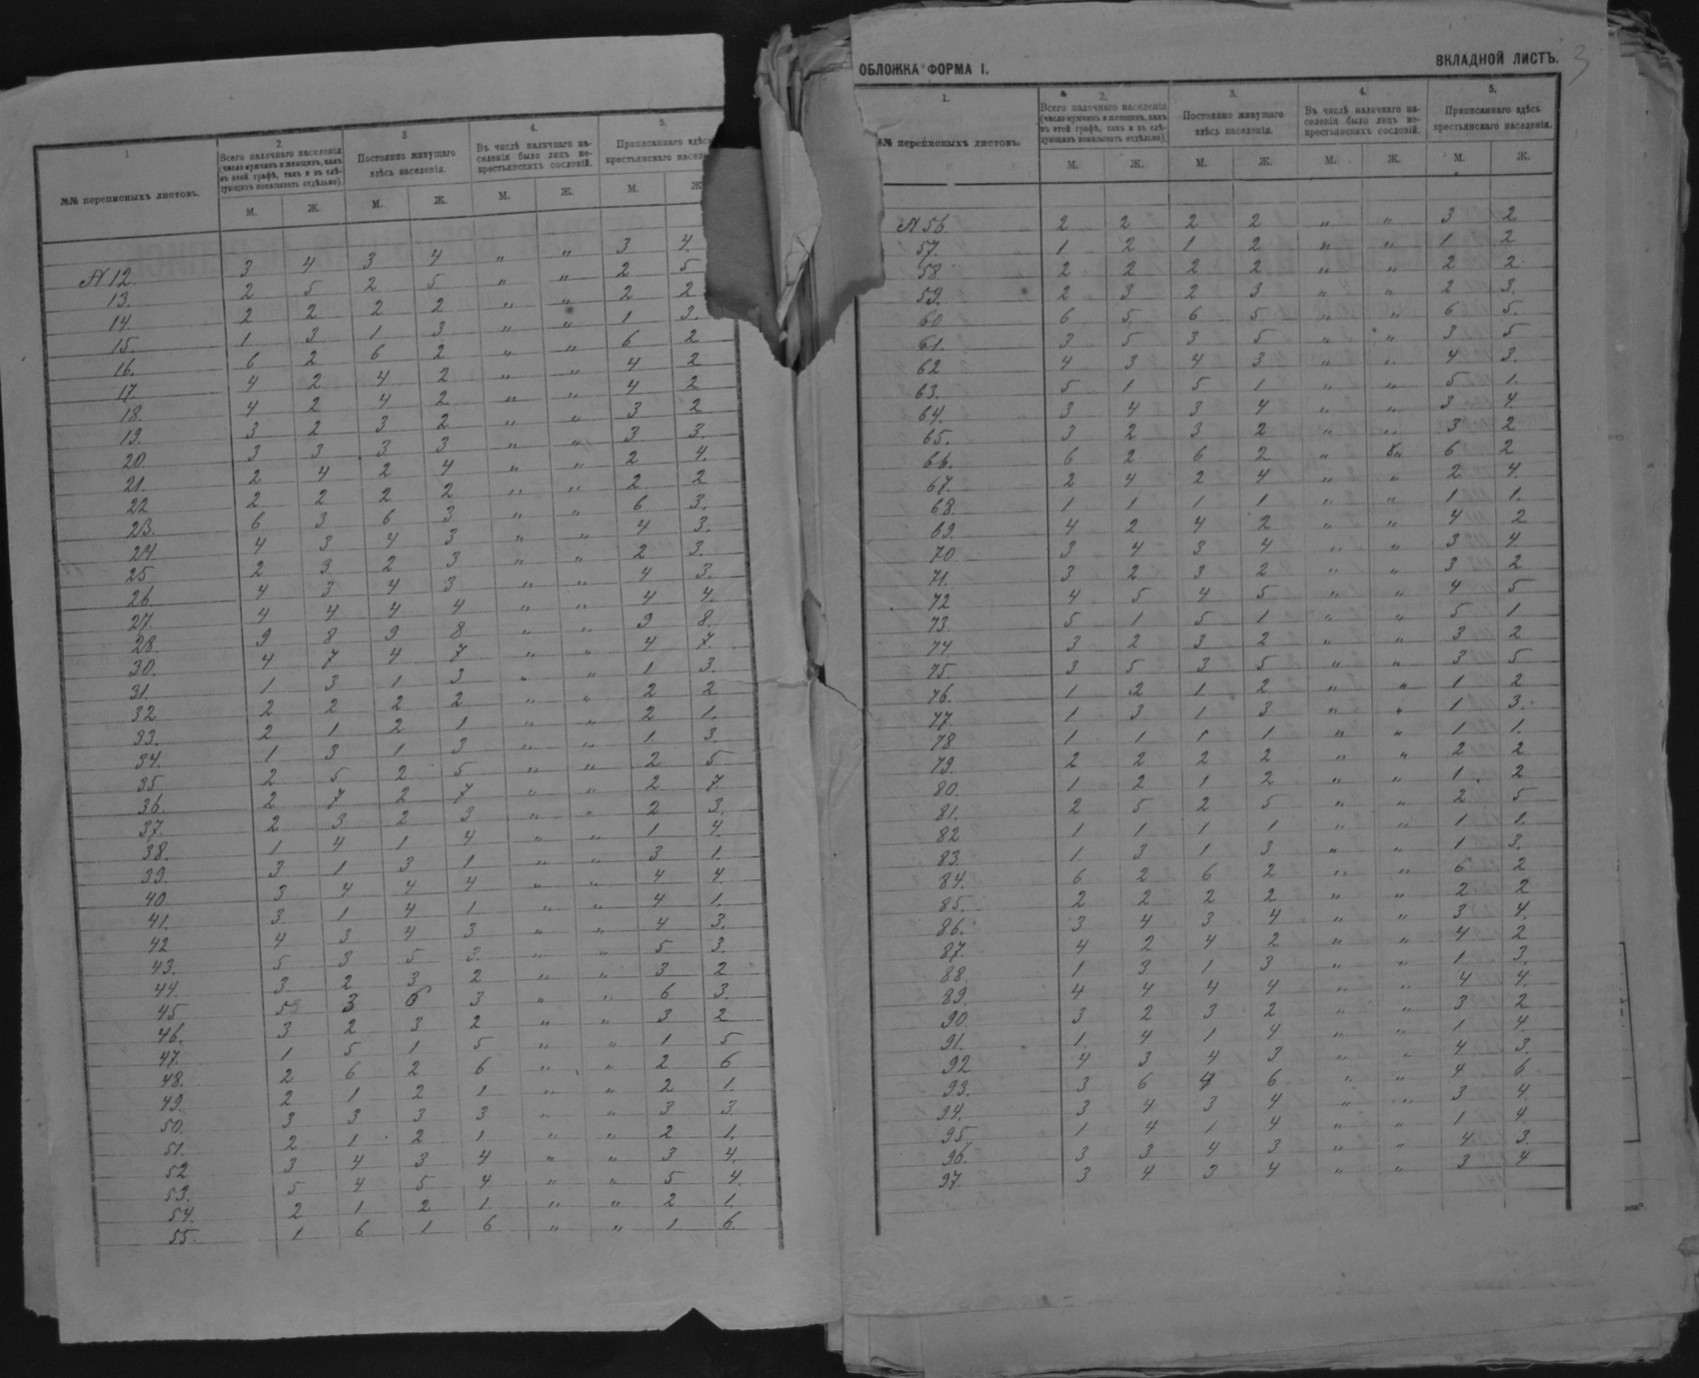 1
2.
3
4.
5.
№№ переписныхъ листовъ.
Всего наличнаго населенія
(число мужчин и женщин, какъ
въ этой графѣ, такъ и въ слѣ-
дующихъ показывать отдѣльно).
Постоянно живущаго
здѣсь населенія.
Въ числѣ наличнаго на-
селенія было лицъ не-
крестьянскихъ сословій.
Приписаннаго здѣсь
крестьянскаго населе
М. Ж. М. Ж. М. Ж. М. Ж
№ 12. 3 4 3 4 " " 3 4.
13. 2 5 2 5 " " 2 5
14 2 2 2 2 " " 2 2
15. 1 3 1 3 " " 1 3.
16. 6 2 6 2 " " 6 2
17. 4 2 4 2 " " 4 2
18. 4 2 4 2 " " 4 2
19. 3 2 3 2 " " 3 2
20. 3 3 3 3 " " 3 3.
21. 2 4 2 4 " " 2 4.
22 2 2 2 2 " " 2 2
23. 6 3 6 3 " " 6 3.
24. 4 3 4 3 " " 4 3.
25 2 3 2 3 " " 2 3.
26. 4 3 4 3 " " 4 3.
27. 4 4 4 4 " " 4 4.
28. 9 8 9 8 " " 9 8.
30. 4 7 4 7 " " 4 7.
31. 1 3 1 3 " " 1 3.
32 2 2 2 2 " " 2 2
33. 2 1 2 1 " " 2 1.
34. 1 3 1 3 " " 1 3
35 2 5 2 5 " " 2 5
36. 2 7 2 7 " " 2 7.
37. 2 3 2 3 " " 2 3.
38. 1 4 1 4 " " 1 4.
39. 3 1 3 1 " " 3 1.
40 3 4 4 4 " " 4 4.
41. 3 1 4 1 " " 4 1.
42 4 3 4 3 " " 4 3.
43. 5 3 5 3 " " 5 3.
44. 3 2 3 2 " " 3 2
45 5 3 6 3 " " 6 3.
46. 3 2 3 2 " " 3 2
47. 1 5 1 5 " " 1 5
48. 2 6 2 6 " " 2 6
49. 2 1 2 1 " " 2 1.
50. 3 3 3 3 " " 3 3.
51. 2 1 2 1 " " 2 1.
52 3 4 3 4 " " 3 4.
53. 5 4 5 4 " " 5 4.
54. 2 1 2 1 " " 2 1.
55. 1 6 1 6 " " 1 6.
ОБЛОЖКА ФОРМА I.
ВКЛАДНОЙ ЛИСТЪ.
3
1.
2.
3.
4.
5.
№ переписныхъ листовъ.
Всего наличнаго населенія
(число мужчин и женщин, какъ
въ этой графѣ, такъ и въ слѣ-
дующихъ показывать отдѣльно).
Постоянно живущаго
здѣсь населенія.
Въ числѣ наличнаго на-
селенія было лицъ не-
крестьянскихъ сословій.
Приписаннаго здѣсь
крестьянскаго населенія.
М. Ж. М. Ж. М. Ж. М. Ж.
№ 56 2 2 2 2 " " 3 2
57. 1 2 1 2 " " 1 2
58. 2 2 2 2 " " 2 2
59. 2 3 2 3 " " 2 3.
60 6 5 6 5 " " 6 5.
61. 3 5 3 5 " " 3 5
62 4 3 4 3 " " 4 3.
63. 5 1 5 1 " " 5 1.
64. 3 4 3 4 " " 3 4.
65. 3 2 3 2 " " 3 2
66. 6 2 6 2 " " 6 2
67. 2 4 2 4 " " 2 4.
68. 1 1 1 1 " " 1 1.
69. 4 2 4 2 " " 4 2
70 3 4 3 4 " " 3 4.
71. 3 2 3 2 " " 3 2
72 4 5 4 5 " " 4 5
73. 5 1 5 1 " " 5 1
74 3 2 3 2 " " 3 2
75. 3 5 3 5 " " 3 5
76. 1 2 1 2 " " 1 2
77 1 3 1 3 " " 1 3.
78. 1 1 1 1 " " 1 1.
79. 2 2 2 2 " " 2 2
80. 1 2 1 2 " " 1 2
81. 2 5 2 5 " " 2 5
82 1 1 1 1 " " 1 1.
83. 1 3 1 3 " " 1 3.
84. 6 2 6 2 " " 6 2
85. 2 2 2 2 " " 2 2
86. 3 4 3 4 " " 3 4.
87. 4 2 4 2 " " 4 2
88. 1 3 1 3 " " 1 3.
89. 4 4 4 4 " " 4 4.
90. 3 2 3 2 " " 3 2
91. 1 4 1 4 " " 1 4.
92 4 3 4 3 " " 4 3.
93. 3 6 4 6 " " 4 6
94. 3 4 3 4 " " 3 4.
95. 1 4 1 4 " " 1 4
96. 3 3 4 3 " " 4 3.
97. 3 4 3 4 " " 3 4